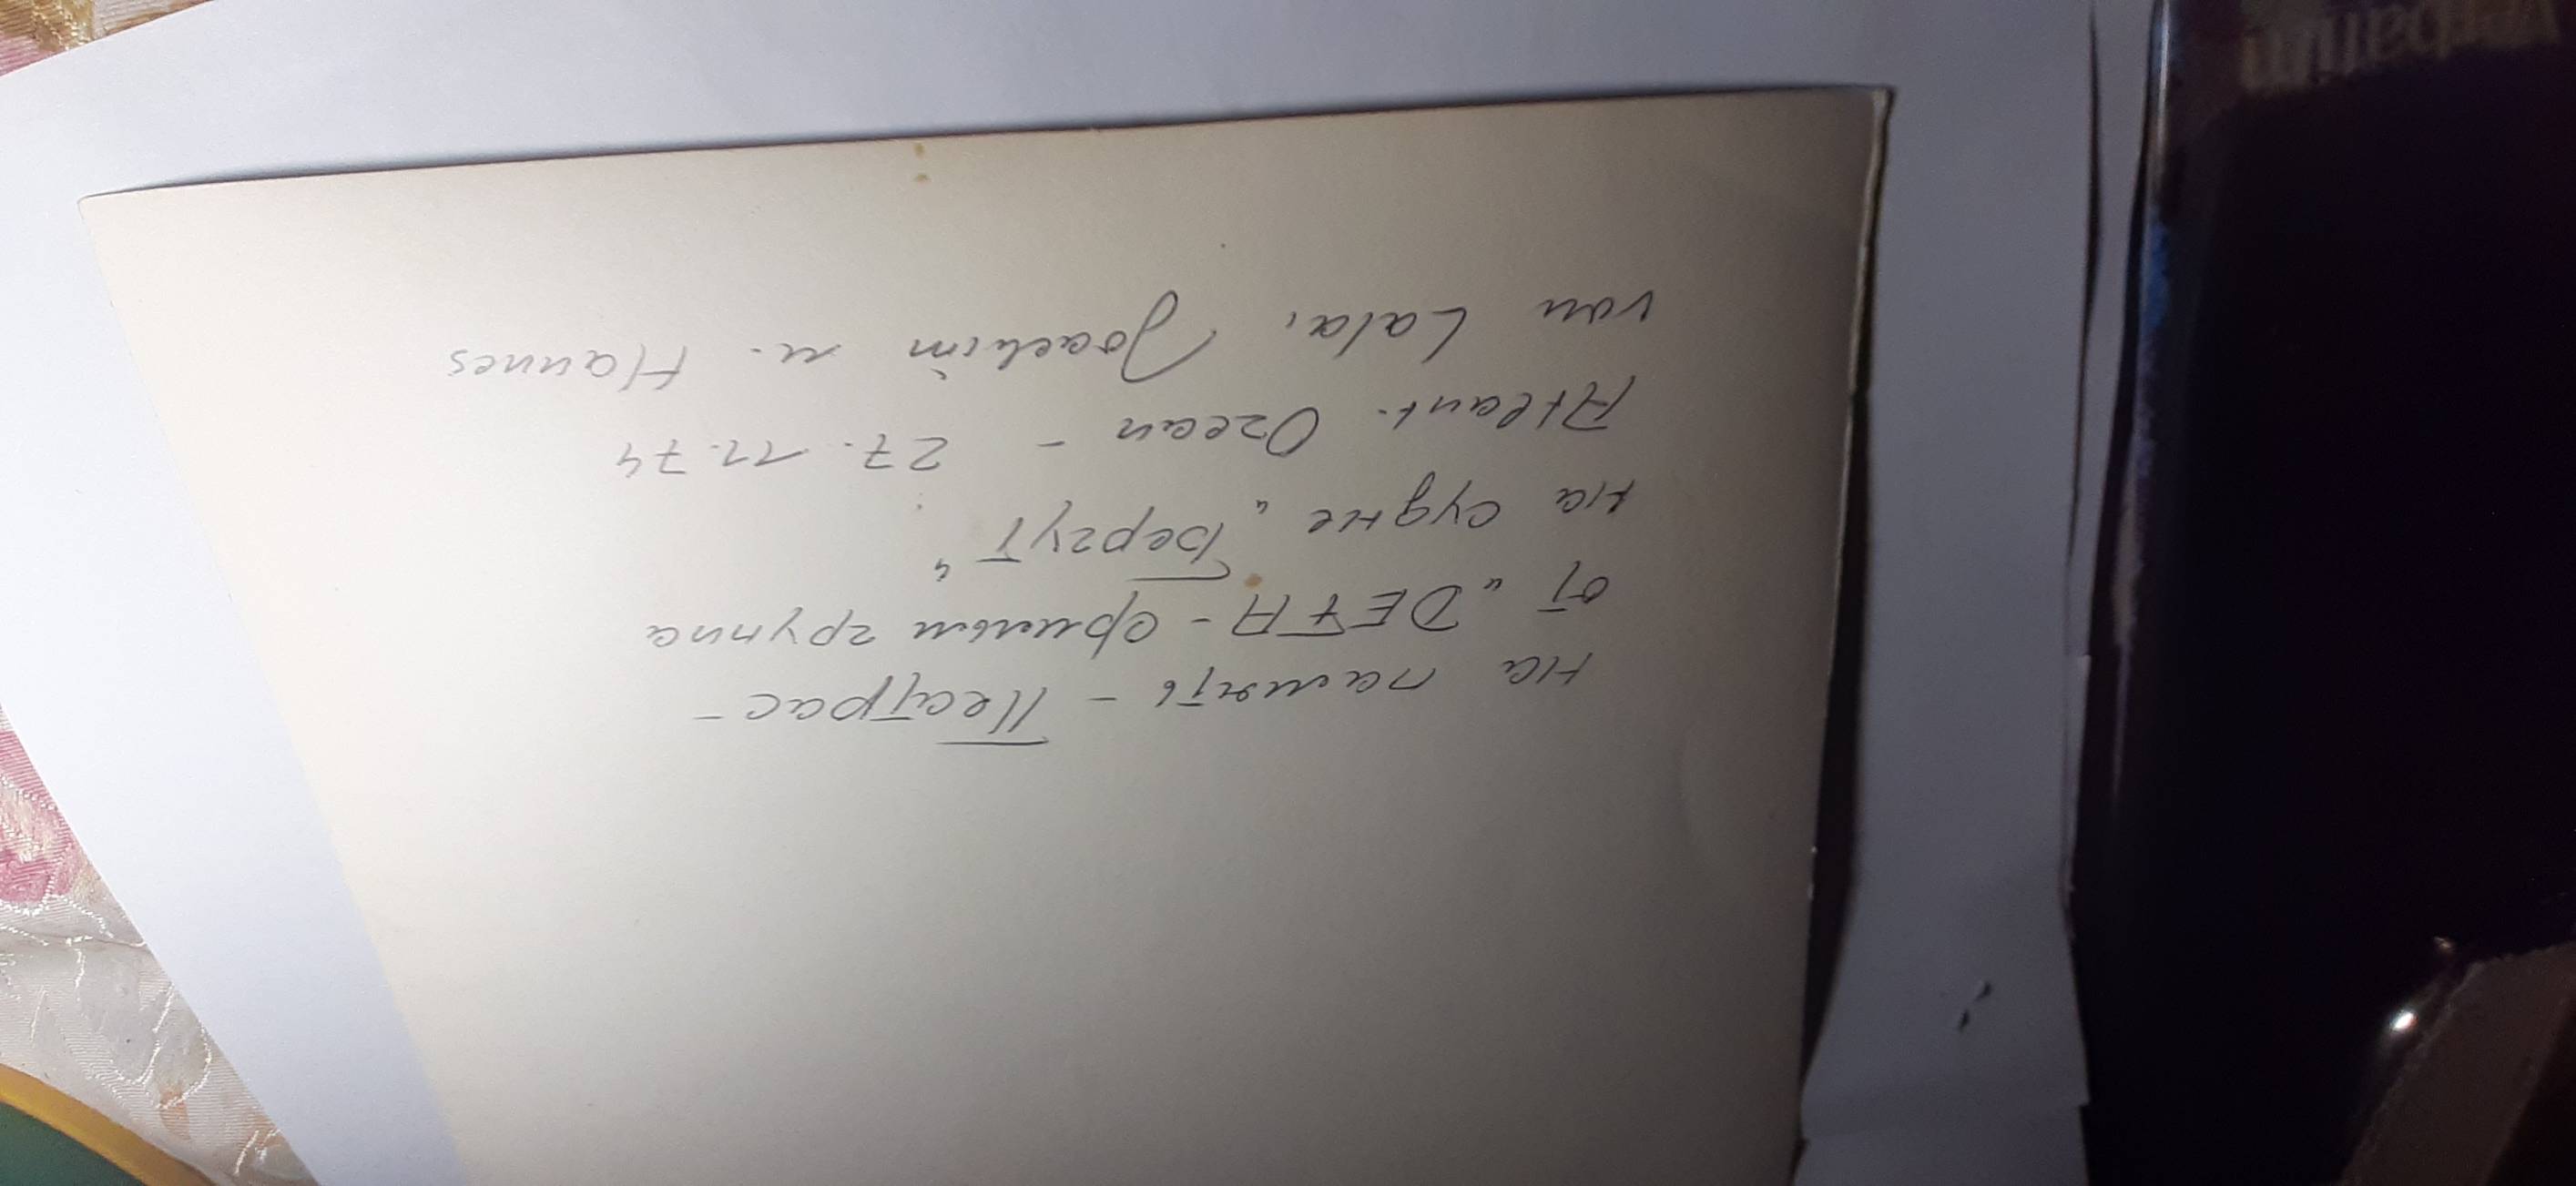 на память - Пестрас -
от „DEFA - фильм группа
на судне „Бергут“
Atlant. Ozean - 27.11.74
von Lala, Joachim u. Hannes